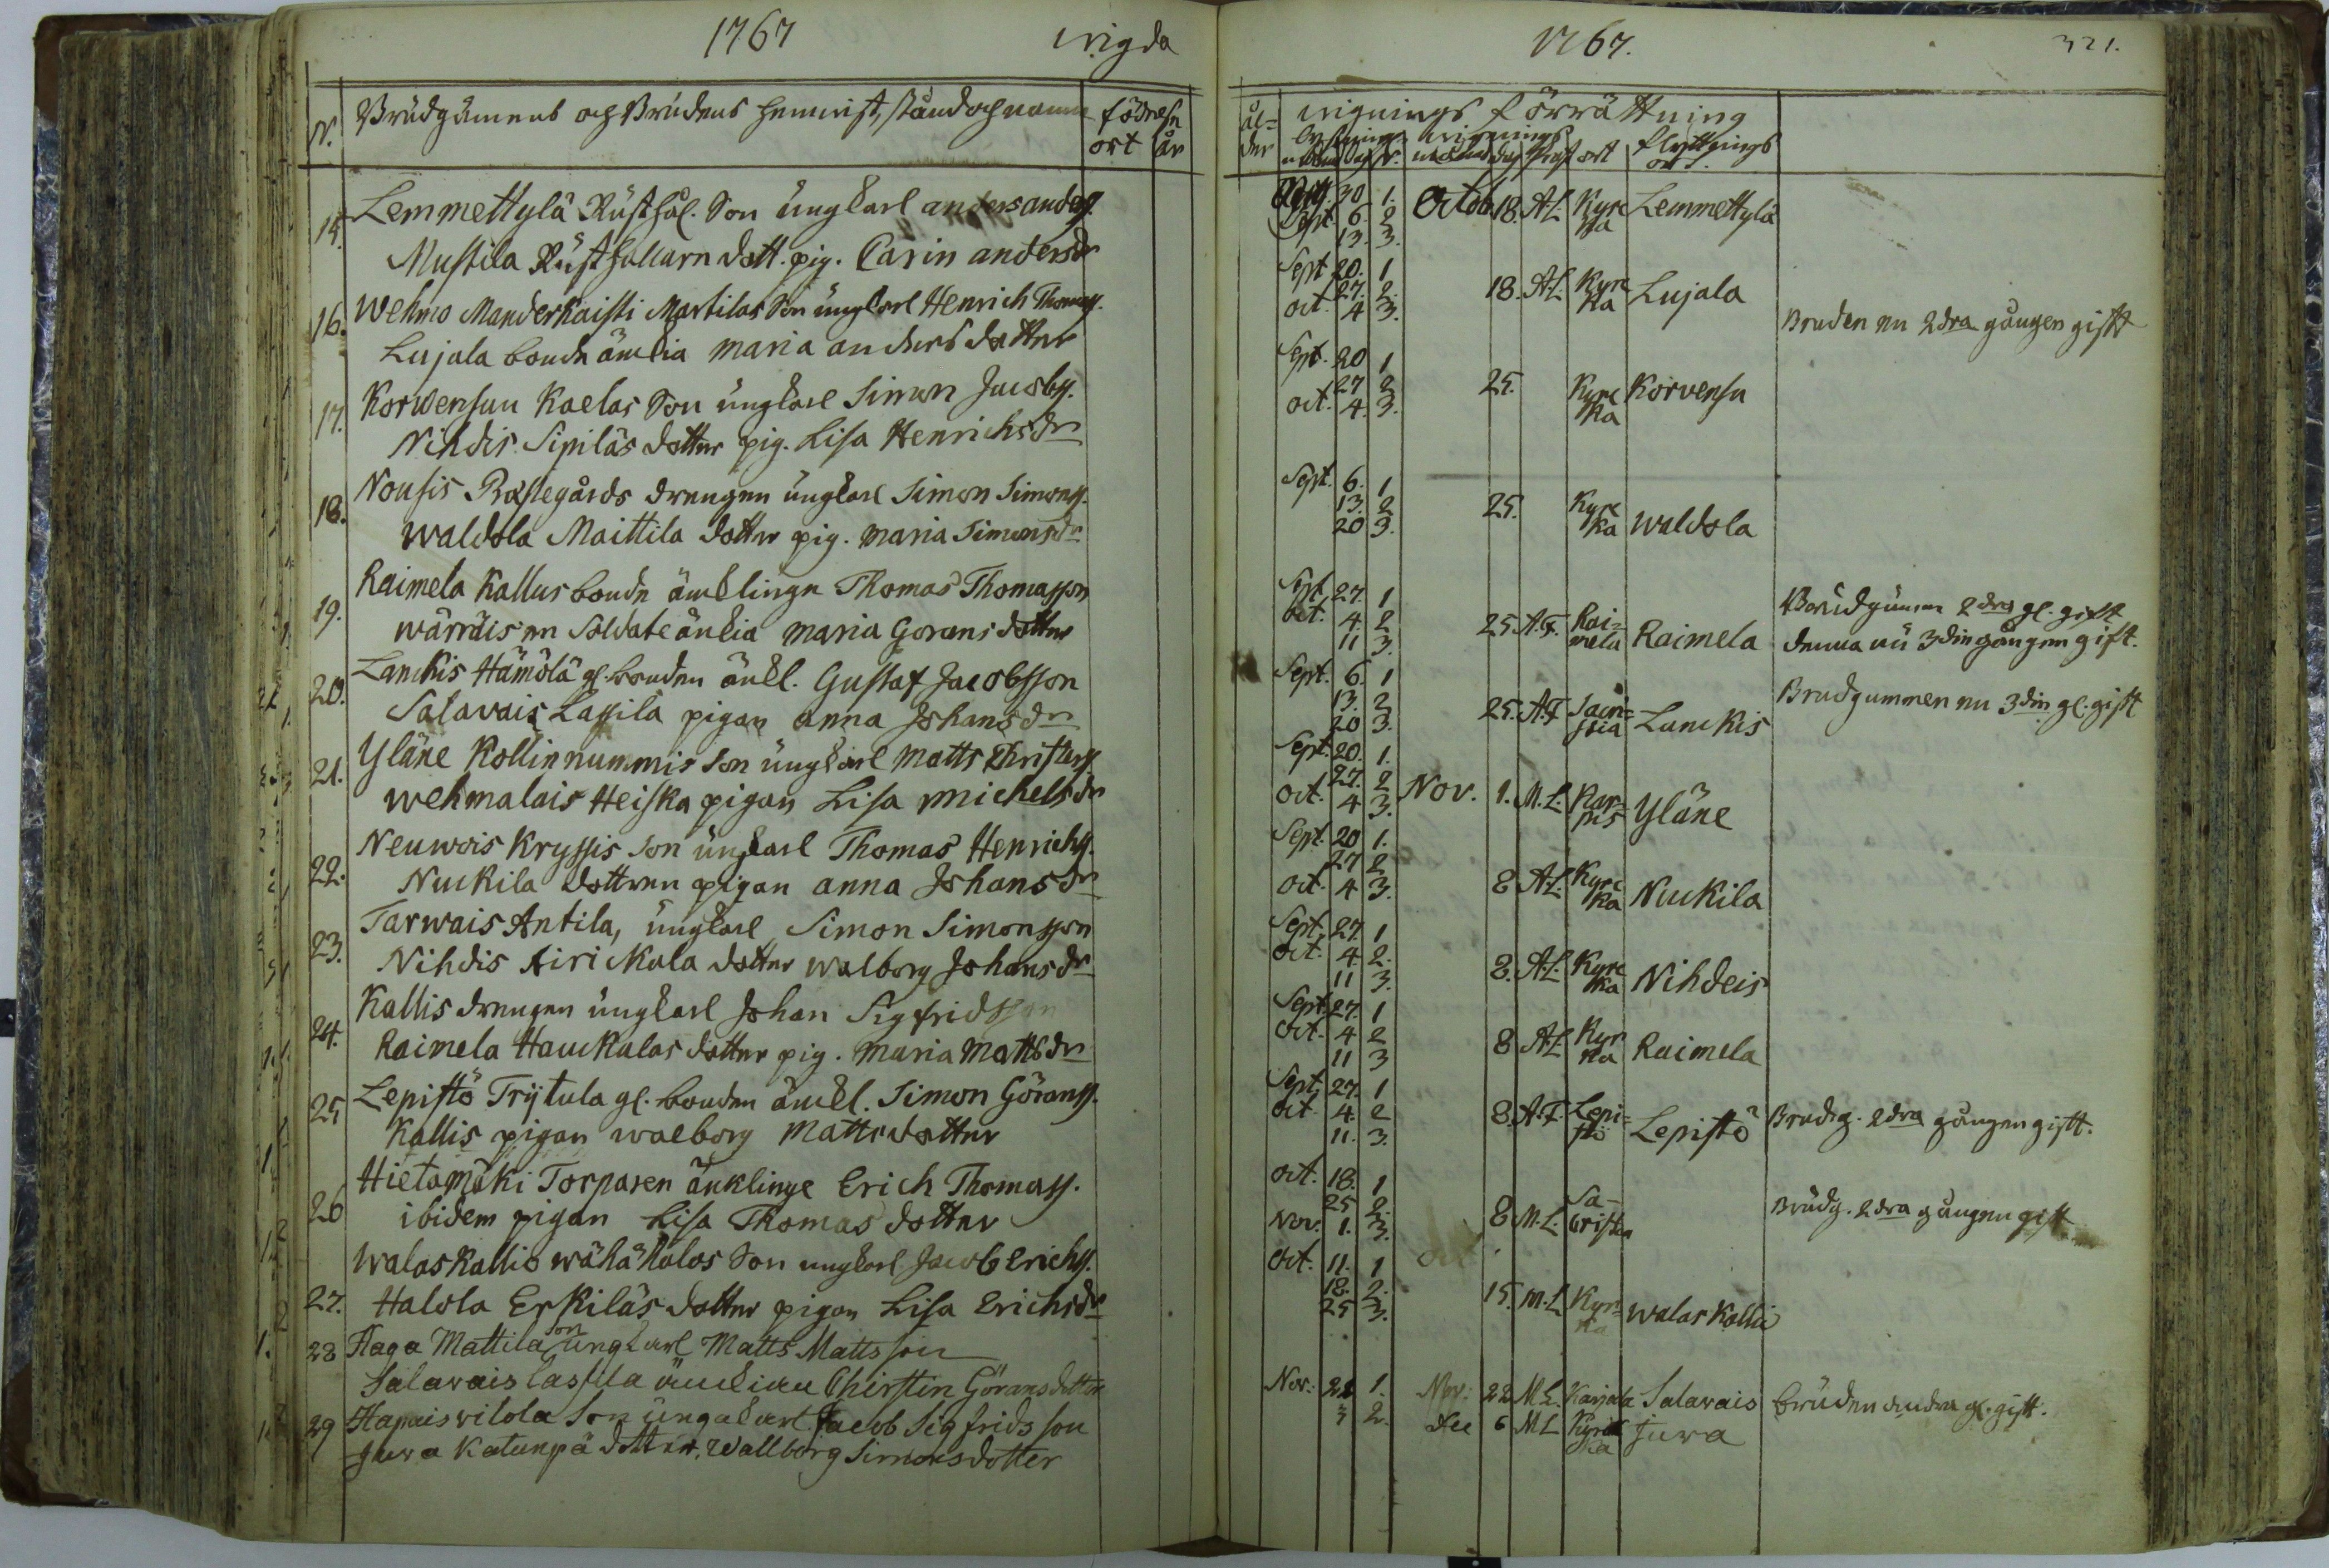 1767 wigda
N. Brudgumens och Brudens hemwist, stånd och namn födnelse
ort år
15. Lemmettylä Rusthål. Son ungkarl anders anderss.
Mustila Rusthållarn dott. pig. Carin andersdr
16. Wehmo Manderkaisti Martilas Son ungkarl Henrich Thomass.
Lujala bonde änckia maria anders dotter
17. Korwensuu Kaelas Son ungkarl Simon Jacobss.
Nihdis Sipiläs dotter pig. Lisa Henrichsdr
18. Nousis Prästegårds drengen ungkarl Simon Simonss.
Waldola Maittila dotter pig. maria Simonsdr
19. Raimela Kallus bonde äncklinge Thomas Thomasson
wärräis en Soldate änkia maria Gorans dotter
20. Lanckis Hämölä gl. bonden änckl. Gustaf Jacobsson
Salavais Lassila pigan anna Johansdr
21. Yläne Kollin nummis son ungkarl Matts Christerss.
wehmalais Heiska pigan Lisa michelsdr
22. Neuwois Kryssis son ungkarl Thomas Henrichss.
Nuckila dottren pigan anna Johansdr
23. Tarwais Antila, ungkarl Simon Simonsson
Nihdis Airickala dotter walborg Johansdr
24. Kallis drengen ungkarl Johan Sigfridsson
Raimela Hauckalas dotter pig. maria Mattsdr
25 Lepistö Trijtula gl. bonden änckl. Simon Göranss.
Kallis pigan walborg Mattsdotter
26 Hietamäki Torparen änklinge Erich Thomass.
ibidem pigan Lisa Thomas dotter
Walaskallio wähä Kalas Son ungkarl Jacob Erichss.
27. Halola Erkiläs dotter pigan Lisa Erichsdr
28 Haga Mattila son ungkarl Matts Mattsson
Salavais Lassila änckian Chirstin Görans dotter
29 Hapais vilola Son ungakarl Jacob Sigfridsson
Juva Katunpä dotter, Wallborg Simonsdotter
1767. 321.
ål=
der wignings förrättning
lysnings wignings flyttnings
månad dag månad dag Präst ort ort
30 1. Octob 18. A.L. Kyrc Lemmettylä
Sept. 6. 2 ka
13. 3.
Sept 20. 1
27. 2. 18. A.L. Kyrc Lujala
oct. 4 3. ka Bruden nu 2dra gången gifft
Sept. 20 1
27 2 25. Kyrc Korvensu
oct. 4. 3. ka
Sept. 6. 1
13. 2 25. Kyrc
20 3. ka Waldola
Sept. 27. 1 Brudgumen 2dra gl. gift
oct. 4 2 25. A.F. Rai=
11 3. mela Raimela denna nu 3die gången gift.
Sept. 6. 1
13. 2 25. A.F. Brudgummen nu 3die gl. gift
20 3. Lanckis
Sept. 20. 1.
27. 2 Nov. 1. M.L. Kar=
Oct. 4 3. pis Yläne
Sept. 20 1.
27 2 8 A.L. Kyrc
oct. 4 3. ka Nuckila
Sept. 27. 1
oct. 4. 2. 8. A.L. Kyrc
11 3. ka Nihdeis
Sept. 27. 1
oct. 4 2 8 A.L. Kyr
11 3 ka Raimela
Sept. 27. 1
oct. 4. 2 8. A.F. Lepi=
11. 3. stö Lepistö Brudg. 2dra gången gift.
oct. 18. 1
25 2. 8 M.L. Sa= Brudg. 2dra gången gift
Nov. 1. 3. cristia
Oct. 11. 1 Oct
18. 2. 15. M.L. Kyr=
25 3. ka walaskallio
Nov. 22 1. Nov. 22 M.L. Karjala Salavais bruden andra gl. gift.
3 2. dec 6 M.L Kyrc Juva
ka